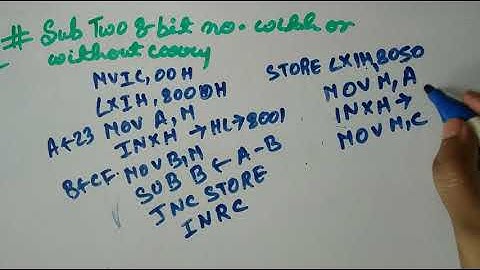 # Sub Two 8-bit no. with or
without carry
MVIC, 00H
LXIH, 8000H
A←23 MOV A, M
INXH → HL→8001
B←CF MOV B, M
SUB B ← A-B
JNC STORE
INRC
STORE LXIH, 8050
MOV M, A
INXH →
MOV M, C